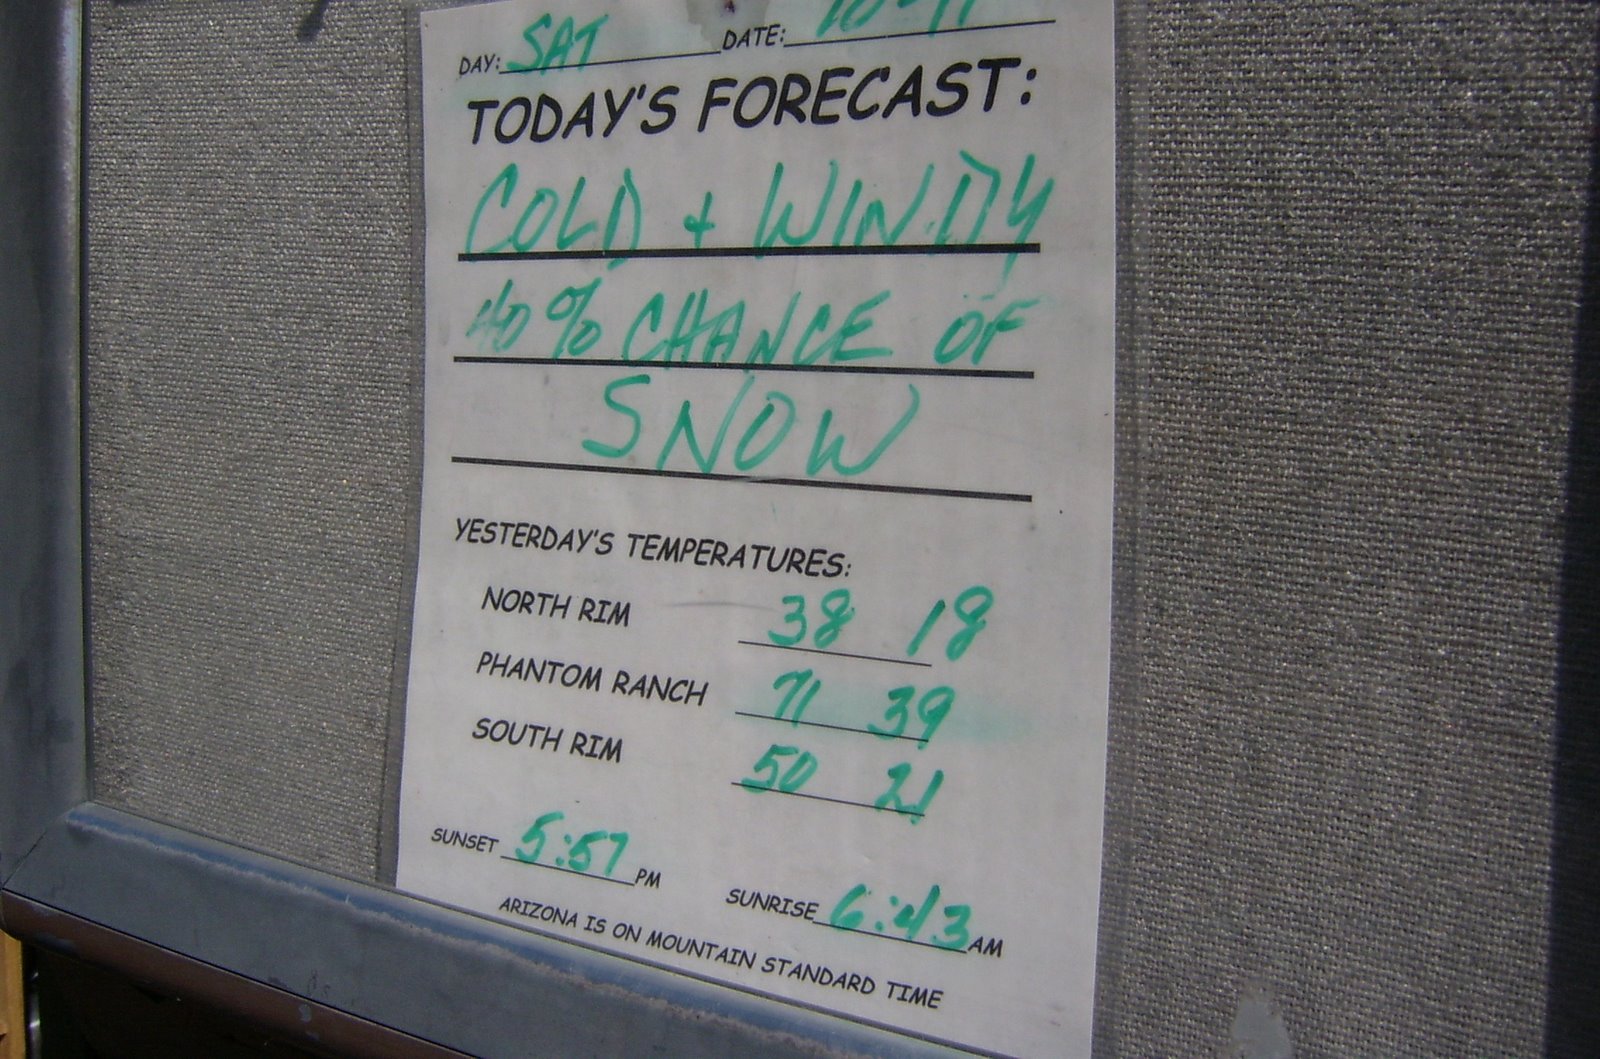 DAY: SAT DATE: 10-11
TODAY'S FORECAST:
COLD + WINDY
40% CHANCE OF
SNOW
YESTERDAY'S TEMPERATURES:
NORTH RIM 38 18
PHANTOM RANCH 71 39
SOUTH RIM 50 21
SUNSET 5:57 PM
SUNRISE 6:43 AM
ARIZONA IS ON MOUNTAIN STANDARD TIME